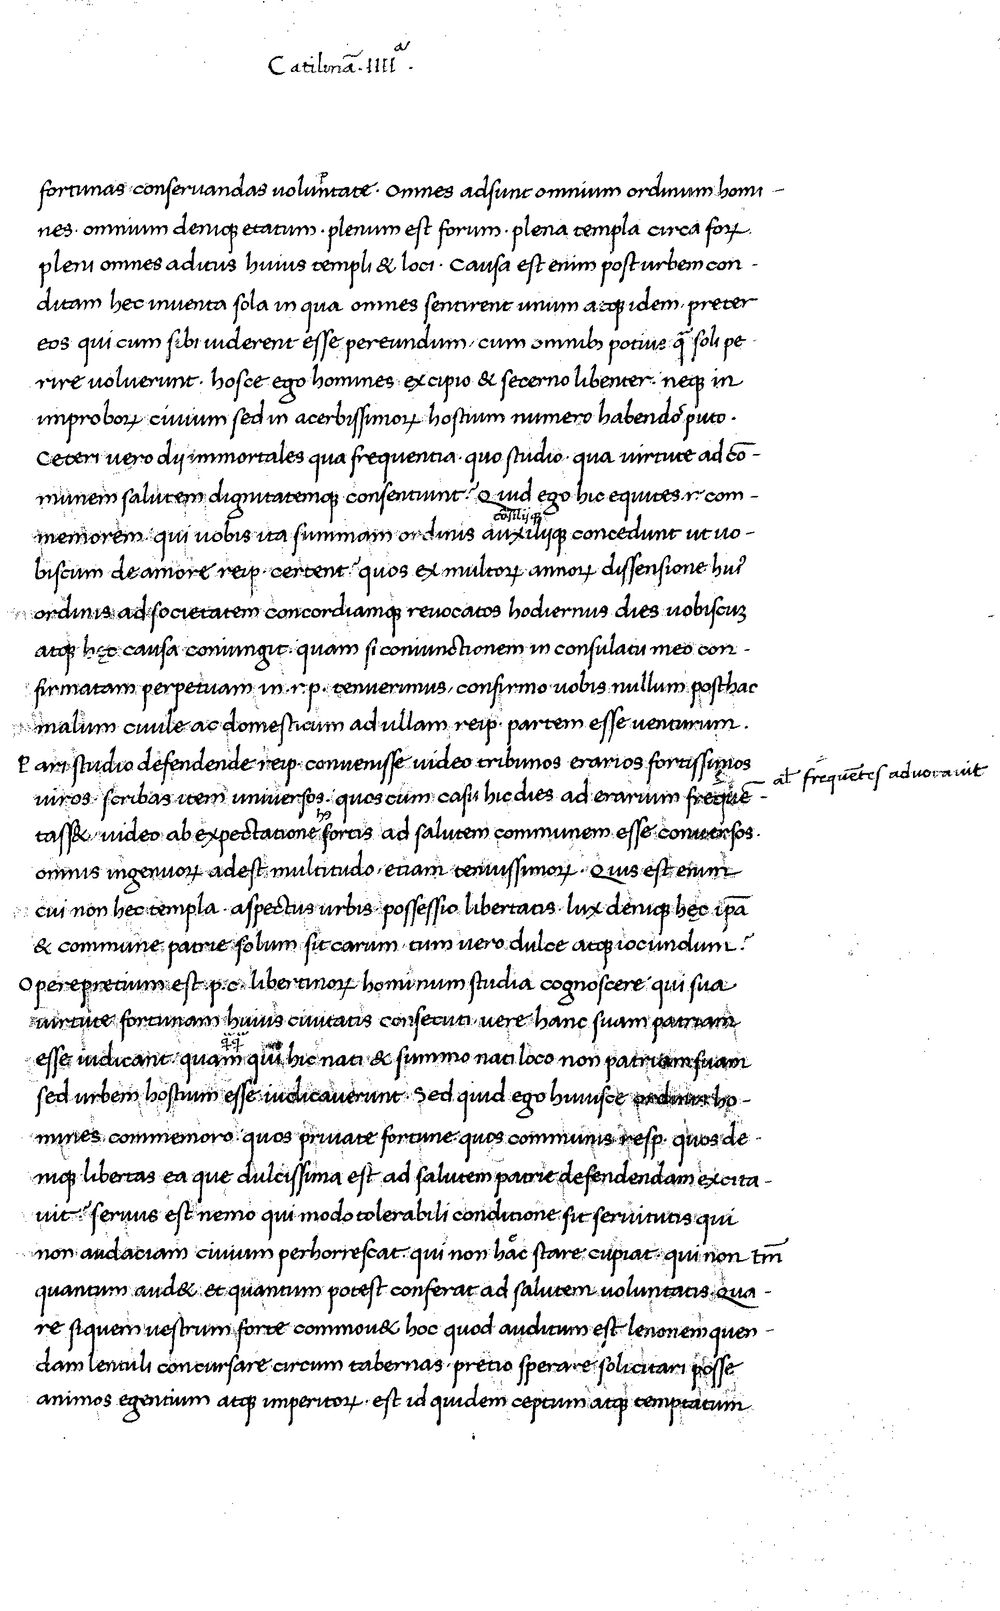 Catilinā · IIIIᵃ ·
fortunas conseruandas uoluntate · Omnes adsunt omnium ordinum homi -
nes · omnium deniqꝫ etatum · plenum est forum · plena templa circa forꝝ ·
pleni omnes aditus huius templi & loci · Causa est enim post urbem con -
ditam hec inuenta sola in qua omnes sentirent unum atqꝫ idem · preter
eos qui cum sibi uiderent esse pereundum, cum omnibꝫ potius q̄ soli pe
rire uoluerunt · hosce ego homines excipio & secerno libenter · neqꝫ in
improborꝝ ciuium sed in acerbissimorꝝ hostium numero habendo puto ·
Ceteri uero dij immortales qua frequentia · quo studio · qua uirtute ad cō -
munem salutem dignitatemqꝫ consentiunt? Quid ego hic equites · r · com -
cōsilijqꝫ
memorem · qui uobis ita summam ordinis auxilijqꝫ concedunt ut uo -
biscum de amore reip · certent? quos ex multorꝝ annorꝝ dissensione huiꝰ
ordinis ad societatem concordiamqꝫ reuocatos hodiernus dies uobiscuꝫ
atqꝫ hęc causa coniungit · quam si coniunctionem in consulatu meo con -
firmatam perpetuam in · r · p · tenuerimus, confirmo uobis nullum posthac
malum ciuile ac domesticum ad ullam reip · partem esse uenturum ·
Pari studio defendende reip · conuenisse uideo tribunos erarios fortissimos
uiros · scribas item uniuersos · quos cum casu hic dies ad erarium frequē - al' frequētes aduocauit
tass& · uideo ab expectatione fortis ad salutem communem esse conuersos ·
omnis ingenuorꝝ adest multitudo · etiam tenuissimorꝝ · Quis est enim
cui non hec templa · aspectus urbis · possessio libertatis · lux deniqꝫ hęc ipā
& commune patrie solum sit carum · tum uero dulce atqꝫ iocundum?
Opereprecium est · p · c · libertinorꝝ hominum studia cognoscere qui sua
uirtute fortunam huius ciuitatis consecuti · uere hanc suam patriam
esse iudicant · quam qui hic nati & summo nati loco non patriam suam
sed urbem hostium esse iudicauerunt · Sed quid ego huiusce ordinis ho -
mines commemoro · quos priuate fortune · quos communis resp · quos de -
niqꝫ libertas ea que dulcissima est ad salutem patrie defendendam excita -
uit? seruus est nemo qui modo tolerabili conditione sit seruitutis qui
non audaciam ciuium perhorrescat · qui non hāc stare cupiat · qui non tm̄
quantum aud& et quantum potest conferat ad salutem uoluntatis · Qua -
re siquem uestrum forte commou& hoc quod auditum est lenonem quen -
dam lentuli concursare circum tabernas · precio sperare solicitari posse
animos egentium atqꝫ imperitorꝝ · est id quidem ceptum atqꝫ temptatum